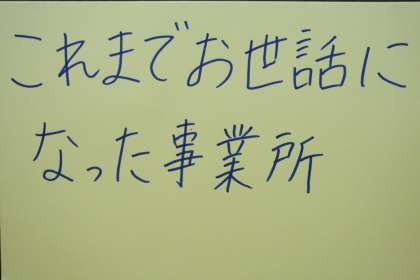 これまでお世話に
なった事業所